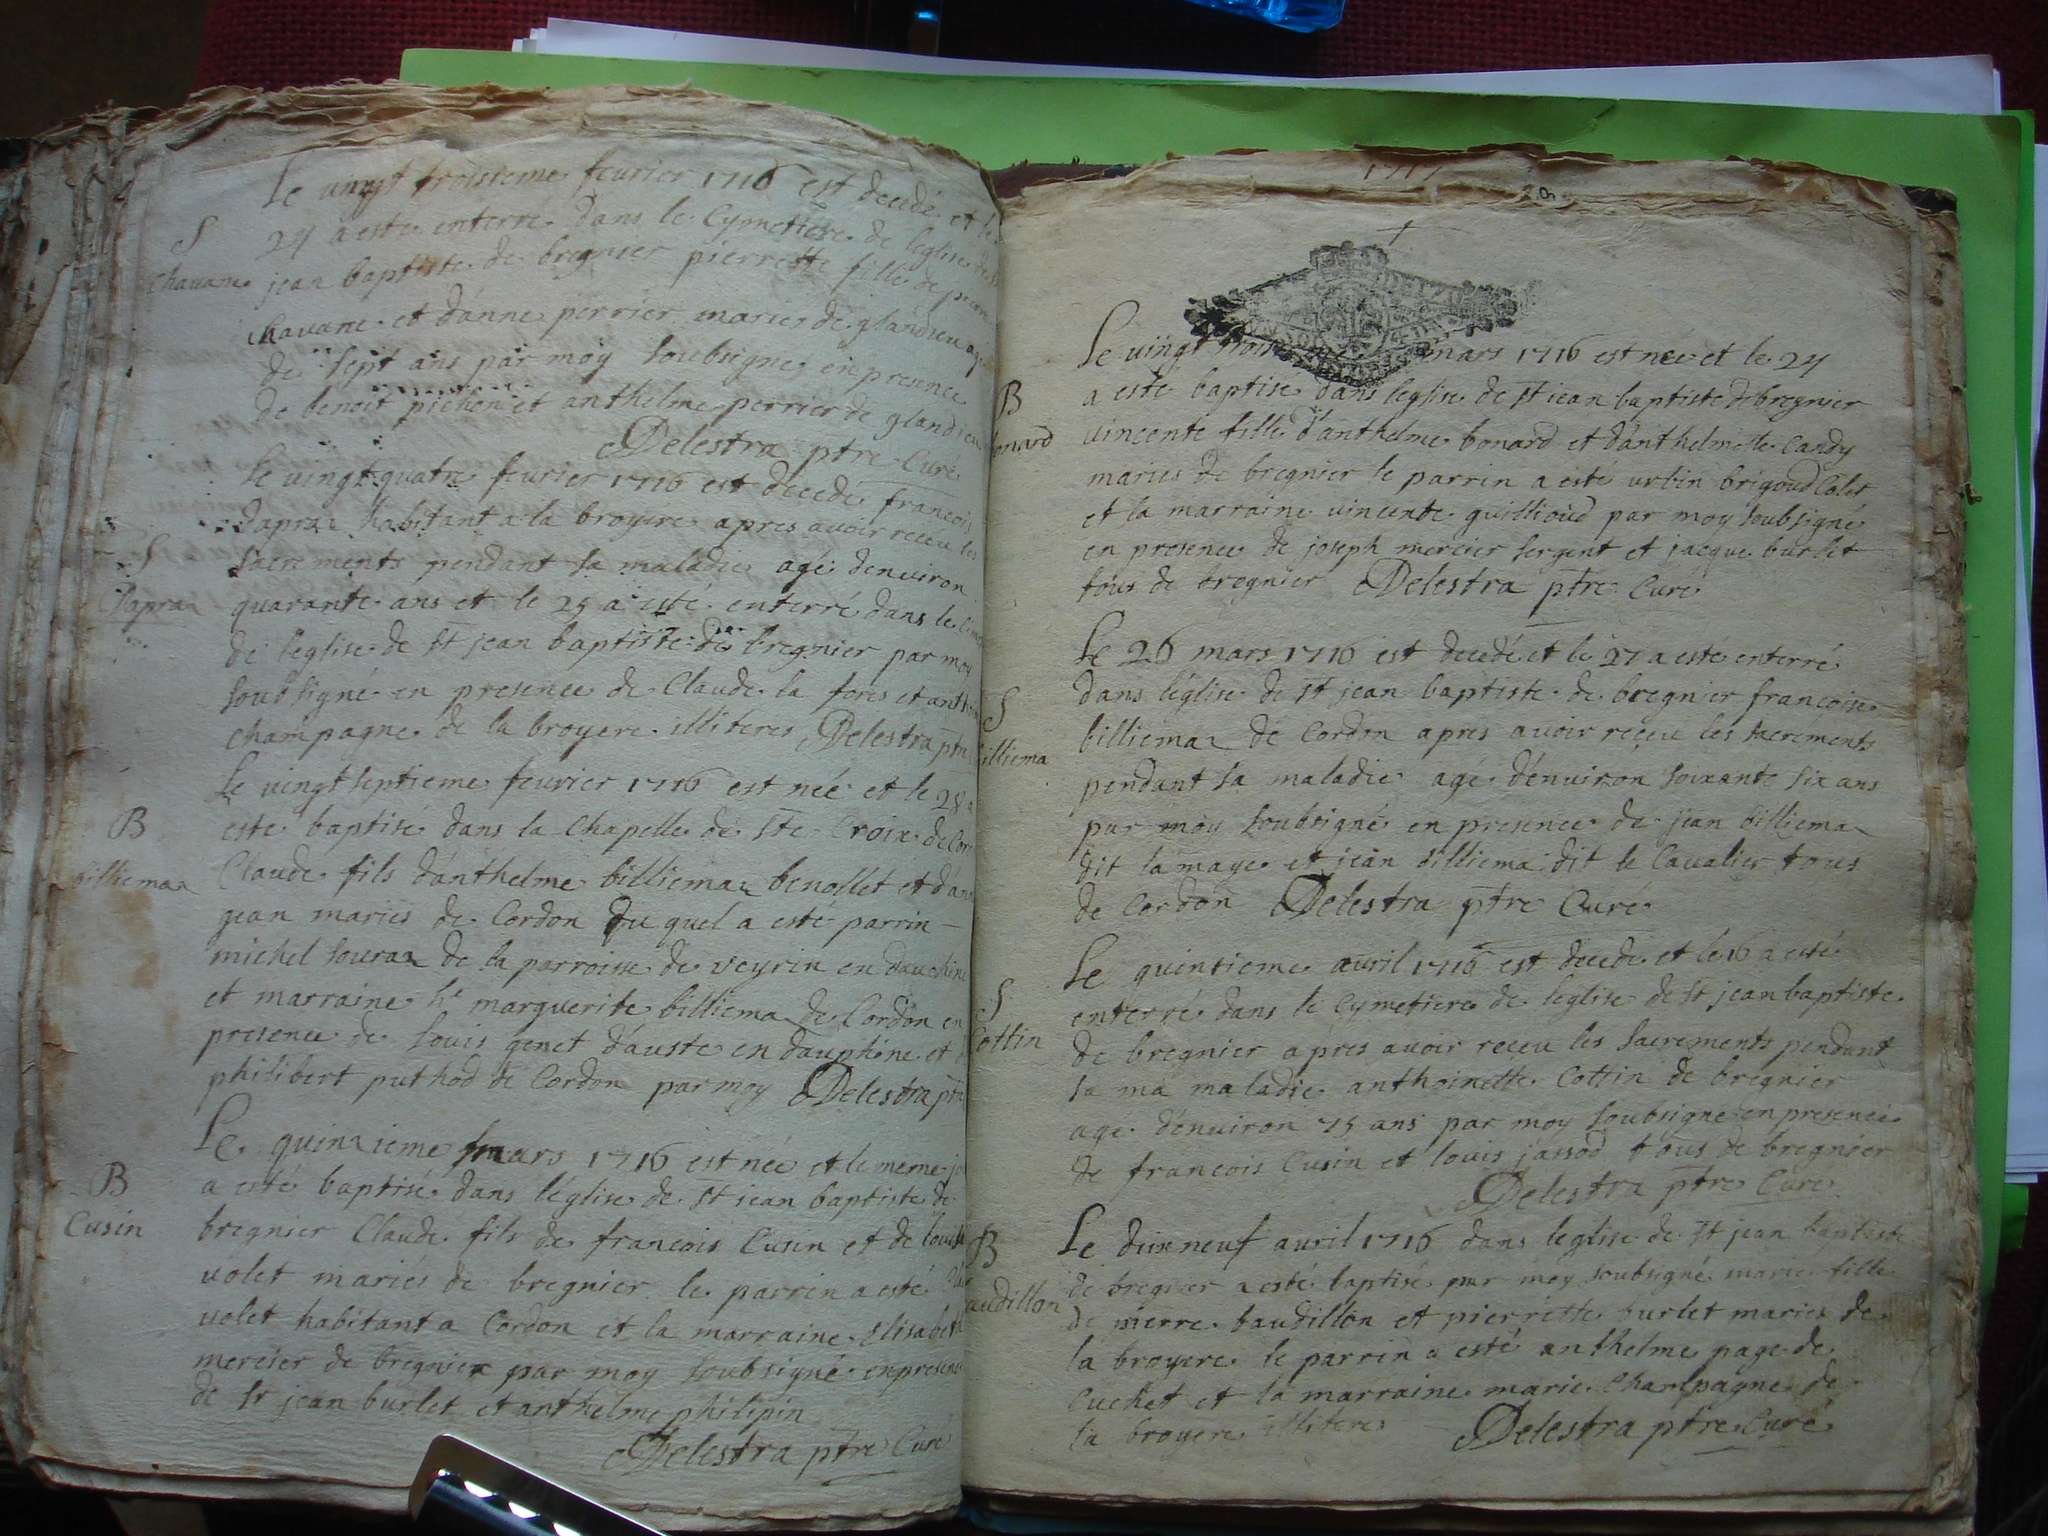 Le vingt troisieme fevrier 1716 est decedé et le
S
24 a esté enterré dans le Cymetiere de leglise de st
Chavane
jean baptiste de bregnier pierrette fille de pierre
chavane et d'anne perrier maries de glandieu agé
de sept ans par moy soubsigné en presence
de benoit pichon et anthelme perrier de glandieu
Delestra ptre Curé
Le vingt quatre fevrier 1716 est decedé francois
dapraz habitant a la broyere apres avoir receu les
S
Dapraz
sacrements pendant sa maladie agé denviron
quarante ans et le 25 a esté enterré dans le
de leglise de st jean baptiste de bregnier par moy
soubsigné en presence de Claude la fores et anth
champagne de la broyere illiteres Delestra ptre
Le vingt septieme fevrier 1716 est née et le 28 a
B
billiemaz
esté baptisé dans la Chapelle de ste Croix de Cor
Claude fils d'anthelme billiemaz benollet et d'an
gean maries de Cordon du quel a esté parrin
michel souraz de la parroisse de veyrin en dauphine
et marraine hte marguerite billiemaz de Cordon en
presence de Louis genet d'auste en dauphine et
philibert puthod de Cordon par moy Delestra ptre
Le quinzieme mars 1716 est née et le meme jo
B
Cusin
a esté baptisé dans l'eglise de st jean baptiste de
bregnier Claude fils de francois Cusin et de louise
volet maries de bregnier le parrin a esté
volet habitant a Cordon et la marraine Elisabeth
mercier de bregnier par moy soubsigné en presence
de sr jean burlet et anthelme philipin
Delestra ptre Curé
Le vingt mars 1716 est nee et le 24
B
bonard
a esté baptisé dans leglise de st jean baptiste de bregnier
vincente fille d'anthelme bonard et d'anthelmette Candy
maries de bregnier le parrin a esté urbin brigoud Colet
et la marraine vincente guillioud par moy soubsigné
en presence de joseph mercier sergent et jacque burlet
tous de bregnier Delestra ptre Curé
Le 26 mars 1716 est decedé et le 27 a esté enterré
S
billiema
dans l'eglise de st jean baptiste de bregnier francoise
billiemaz de Cordon apres avoir reçeu les sacrements
pendant sa maladie agé d'environ soixante six ans
par moy soubsigné en presence de jean billiemaz
dit lamaye et jean billiema dit le Cavalier tous
de Cordon Delestra ptre Curé
Le quinzieme avril 1716 est decedé et le 16 a esté
S
Cottin
enterré dans le Cymetiere de leglise de st jean baptiste
de bregnier apres avoir receu les sacrements pendant
sa ma maladie anthoinette Cottin de bregnier
agé d'environ 75 ans par moy soubsigné en presence
de francois Cusin et louis jassod tous de bregnier
Delestra ptre Curé
B
baudillon
Le dixneuf avril 1716 dans leglise de st jean baptiste
de bregnier a esté baptisé par moy soubsigné marie fille
de pierre baudillon et pierrette burlet maries de
la broyere le parrin a esté anthelme page de
Cuchet et la marraine marie Champagne de
la broyere illitere Delestra ptre Curé